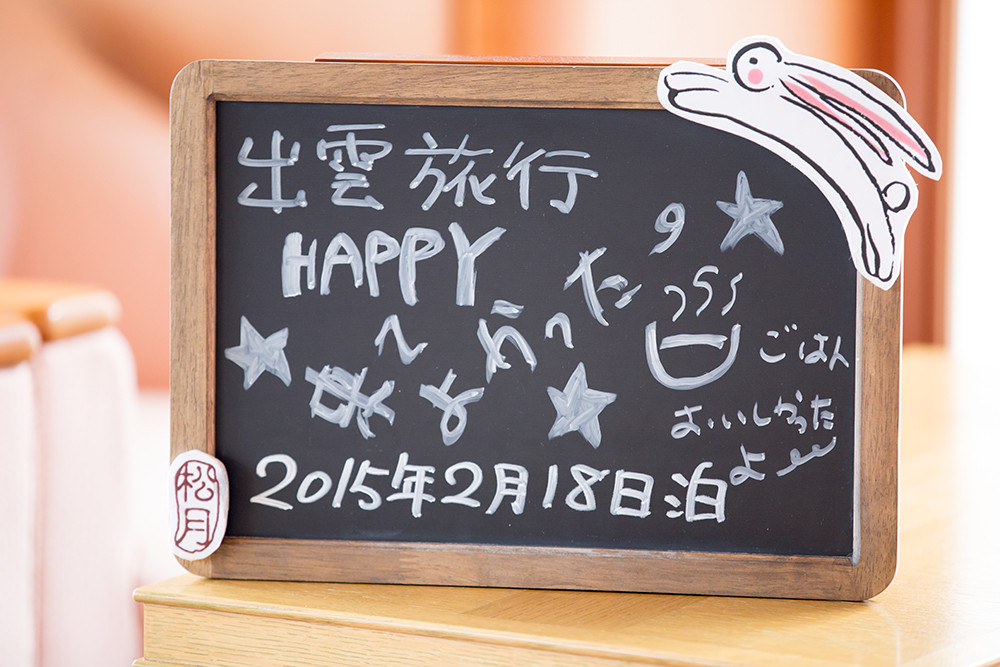 出雲旅行
HAPPY
かった
ごはん
おいしかった
よ
2015年2月18日泊
松月